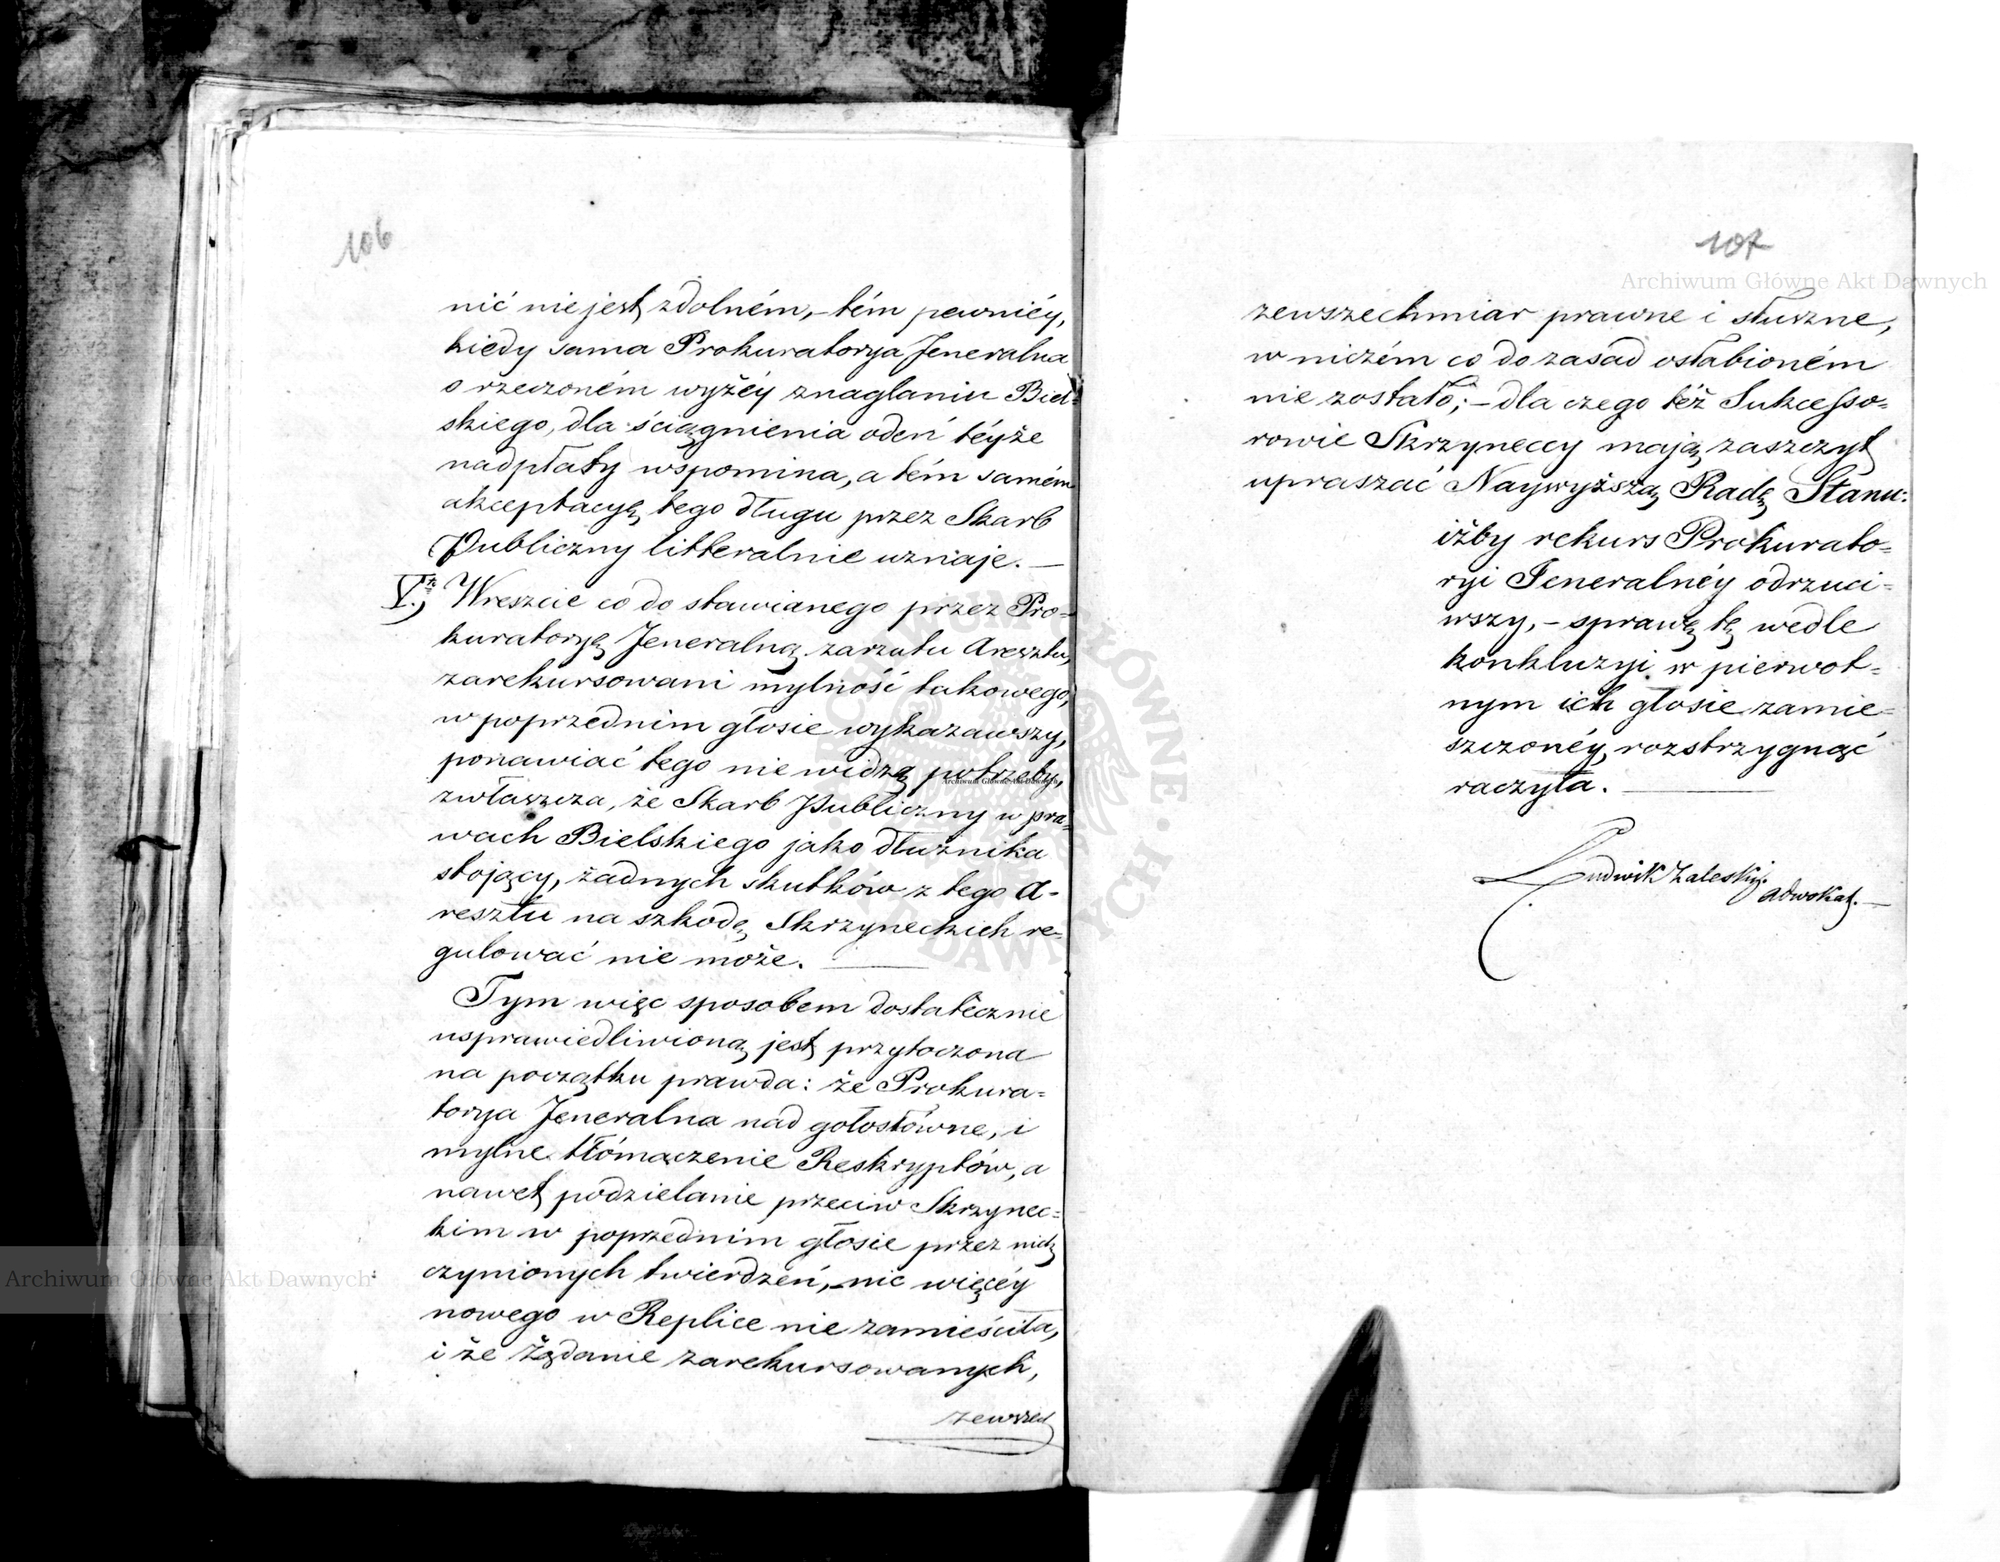 106
nić nie jest zdolném, – tém pewniéy,
kiedy sama Prokuratorya Jeneralna
o rzeczoném wyżéy znaglaniu Biel=
skiego, dla ściągnienia odeń téyże
nadpłaty wspomina, a tém samém
akceptacyą tego długu przez Skarb
Publiczny litteralnie uznaje. —
V. Wreszcie co do stawianego przez Pro=
kuratoryą Jeneralną zarzutu Aresztu,
zarekursowani mylność takowego,
w poprzednim głosie wykazawszy,
ponawiać tego nie widzą potrzeby,
zwłaszcza, że Skarb Publiczny w pra=
wach Bielskiego jako dłużnika
stojący, żadnych skutków z tego A-
resztu na szkodę Skrzyneckich re=
gulować nie może. —
Tym więc sposobem dostatecznie
usprawiedliwioną jest przytoczona
na początku prawda: że Prokura=
torya Jeneralna nad gołosłówne, i
mylne tłómaczenie Reskryptów, a
nawet podzielanie przeciw Skrzynec=
kim w poprzednim głosie przez nich
czynionych twierdzeń, – nic więcéy
nowego w Replice nie zamieściła,
i że żądanie zarekursowanych,
zewszech
107
zewszechmiar prawne i słuszne,
w niczém co do zasad osłabioném
nie zostało; – dla czego téż Sukcesso=
rowie Skrzyneccy mają zaszczyt
upraszać Naywyższą Radę Stanu:
iżby rekurs Prokurato=
ryi Jeneralnéy odrzuci=
wszy, – sprawę tę wedle
konkluzyi w pierwot=
nym ich głosie zamie=
szczonéy, rozstrzygnąć
raczyła. —
Ludwik Zaleski
Adwokat. —
Archiwum Główne Akt Dawnych
Archiwum Główne Akt Dawnych
Archiwum Główne Akt Dawnych
ARCHIWUM GŁÓWNE AKT DAWNYCH